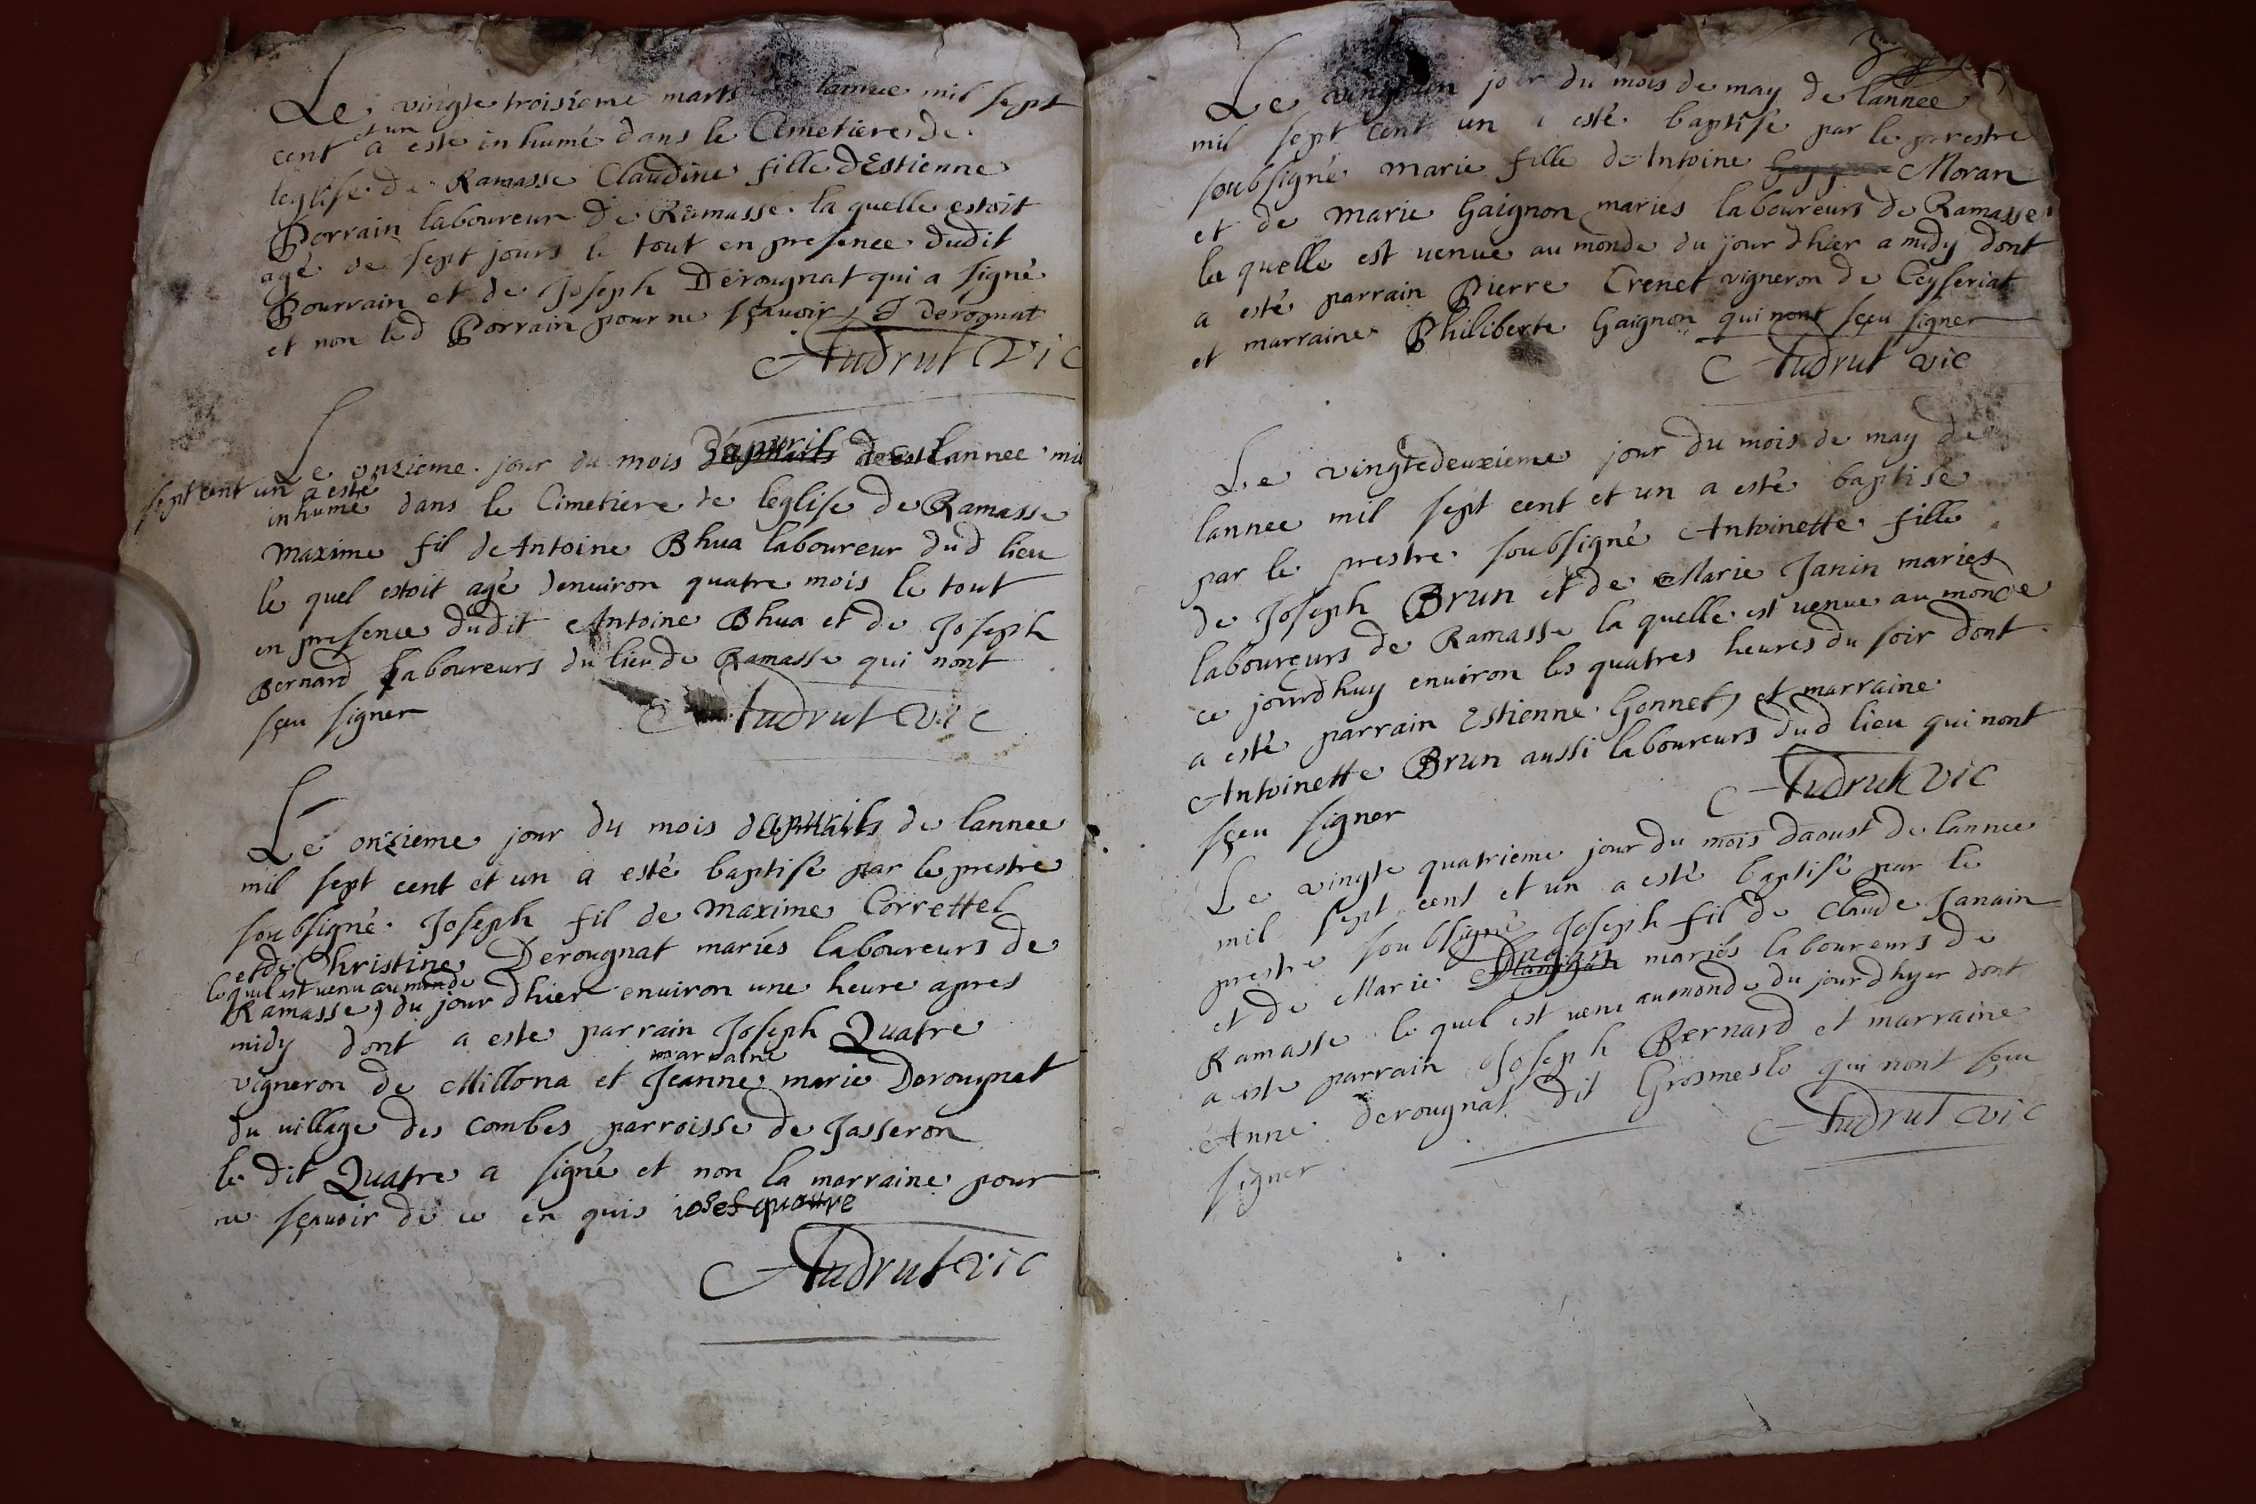 Le vingte troisieme mars lannee mil sept
cent et un a esté inhumé dans le Cimetiere de
leglise de Ramasse Claudine fille dEstienne
Porrain laboureur de Ramasse la quelle estoit
agé de sept jours le tout en presence dudit
Pourrain et de Joseph Derougnat qui a signé
et non led Porrain pour ne sçavoir J derognat
Audrut vic
Le onzieme jour du mois dapvril de lannee mil
sept cent un a esté
inhumé dans le Cimetiere de leglise de Ramasse
Maxime fil de Antoine Bhua laboureur dud lieu
le quel estoit agé denuiron quatre mois le tout
en presence dudit Antoine Bhua et de Joseph
Bernard laboureurs du lieu de Ramasse qui nont
sçeu signer Audrut vic
Le onzieme jour du mois dapvril de lannee
mil sept cent et un a esté baptisé par le prestre
soubsigné Joseph fil de Maxime Correttel
et de Christine Derougnat mariés laboureurs de
le quel est venu au monde
Ramasse, du jour dhier enuiron une heure apres
midy dont a este parrain Joseph Quatre
vigneron de Millona et marraine Jeanne marie Derougnat
du village des Combes parroisse de Jasseron
le dit Quatre a signé et non la marraine pour
ne sçavoir de ce en quis iosef quatre
Audrut vic
Le vingt un jour du mois de may de lannee
mil sept cent un a esté baptisé par le prestre
soubsigné Marie fille de Antoine Moran
et de Marie Gaignon maries laboureurs de Ramasse
la quelle est venue au monde du jour dhier a midy dont
a esté parrain Pierre Crenet vigneron de Ceyseriat
et marraine Philiberte Gaignon qui nont sçeu signer
Audrut vic
Le vingtedeuxieme jour du mois de may de
lannee mil sept cent et un a esté baptise
par le prestre soubsigné Antoinette fille
de Joseph Brun et de Marie Janin mariés
laboureurs de Ramasse la quelle est venue au monde
ce jourdhuy enuiron les quatres heures du soir dont
a esté parrain Estienne Gonnet, et marraine
Antoinette Brun aussi laboureurs dud lieu qui nont
sçeu signer Audrut vic
Le vingte quatrieme jour du mois daoust de lannee
mil sept cent et un a esté baptisé par le
prestre soubsigné Joseph fil de Claude Janain
et de Marie mariés laboureurs de
Ramasse le quel est venu au monde du jour dhyer dont
a este parrain Joseph Bernard et marraine
Anne derougnat dit Grosmesle qui nont sçeu
signer Audrut vic